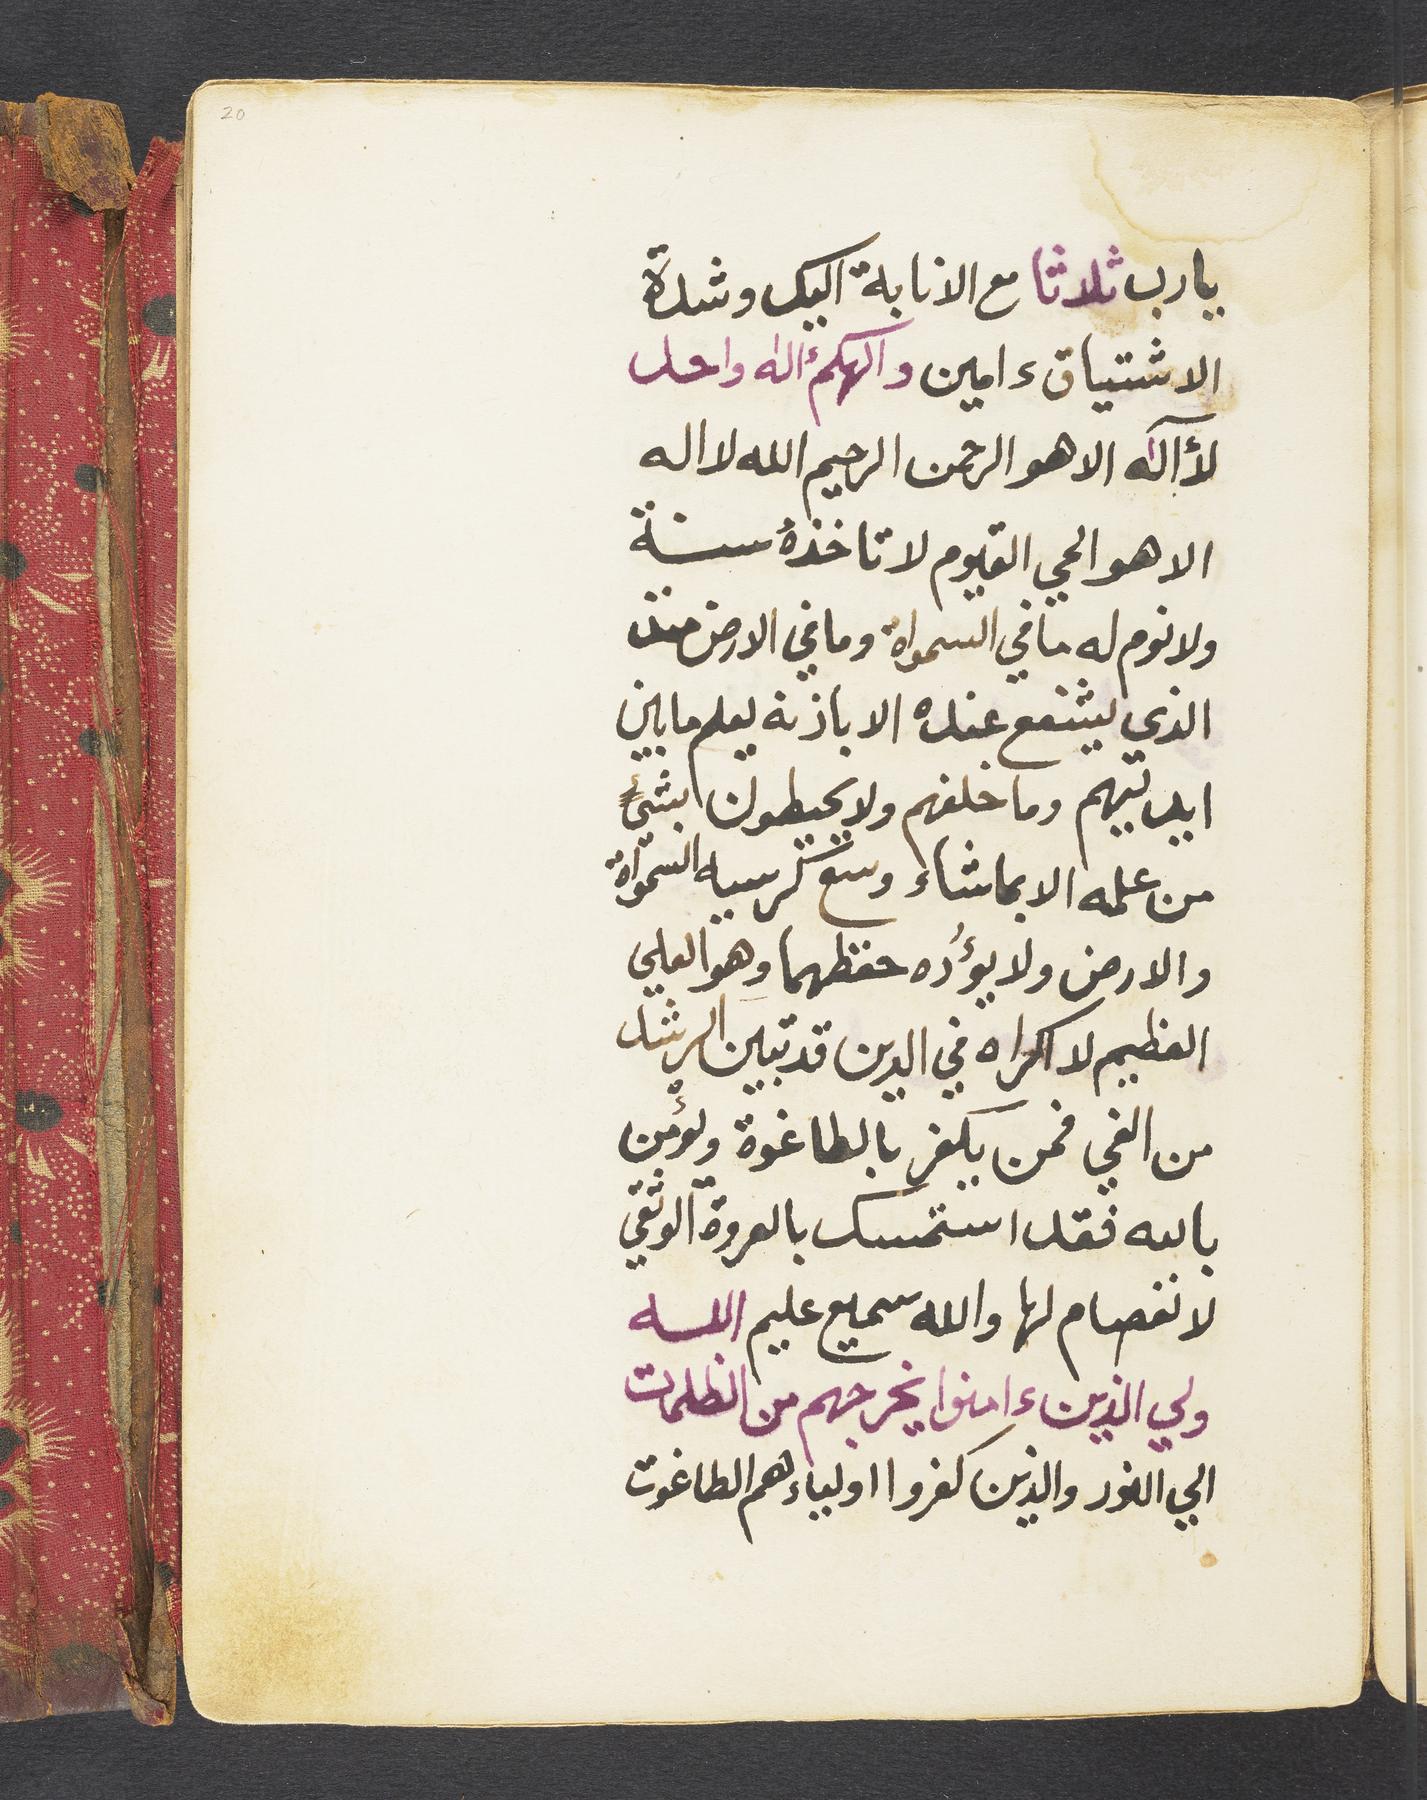 20
يارب ثلاثا مع الانابة اليك وشدة
الاشتياق ءامين والهكم اله واحد
لا اله الا هو الرحمن الرحيم الله لا اله
الا هو الحي القيوم لا تاخذه سنة
ولا نوم له ما في السمواة وما في الارض من ذ
الذي يشفع عنده الا باذنه يعلم ما بين
ايديهم وما خلفهم ولا يحيطون بشيء
من علمه الا بما شاء وسع كرسيه السمواة
والارض ولا يؤده حفظهما وهو العلي
العظيم لا اكراه في الدين قد تبين الرشد
من الغي فمن يكفر بالطاغوة ويؤمن
بالله فقد استمسك بالعروة الوثقي
لا نفصام لها والله سميع عليم الله
ولي الذين ءامنوا يخرجهم من الظلمات
الي النور والذين كفروا اولياءهم الطاغوت